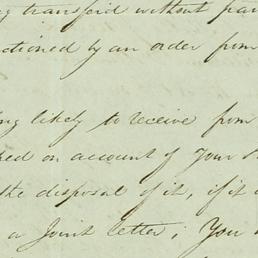 transferd without
ctioned by an order from
ng likely to receive from
ed on account of Your
the disposal of it, if it
a Joint letter; You